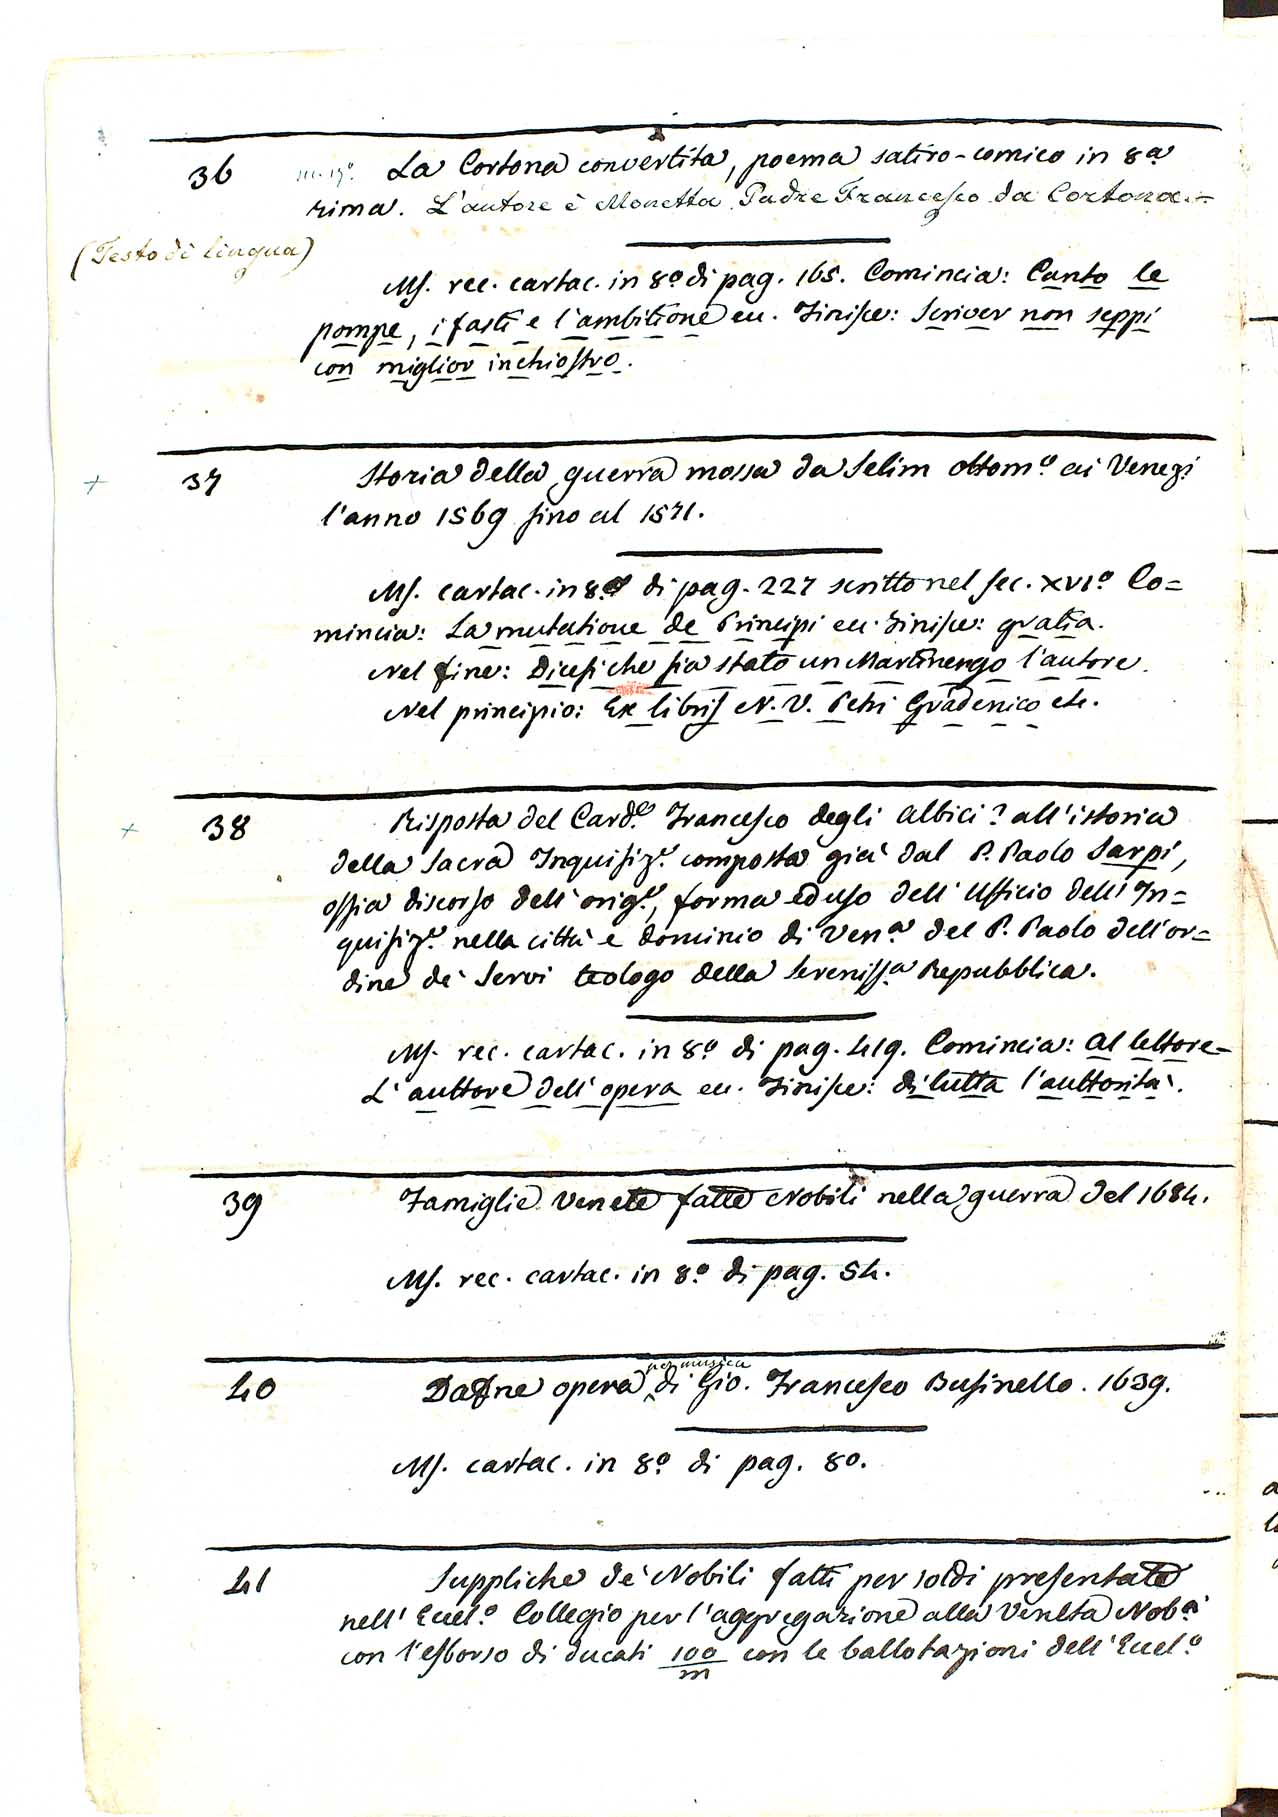 36 La Cortona convertita, poema satiro-comico in 8.a
rima. L'autore è Monetta Padre Francesco da Cortona.-
(Testo di lingua)
Ms. rec. cartac. in 8.o di pag. 165. Comincia: Canto le
pompe, i fasti e l'ambitione ec. Finisce: Scriver non seppi
con miglior inchiostro.
+ 37 Storia della guerra mossa da Selim ottom.o ai Venez.i
l'anno 1569 fino al 1571.
Ms. cartac. in 8.o di pag. 227 scritto nel sec. XVI.o Co=
mincia: La mutatione de Principi ec. Finisce: gratia.
Nel fine: Dicesi che sia stato un Martinengo l'autore.
Nel principio: Ex libris N. V. Petri Gradenico etc.
+ 38 Risposta del Card.e Francesco degli Albici? all'istoria
della Sacra Inquisiz.e composta già dal P. Paolo Sarpi,
ossia discorso dell'orig.e, forma ed uso dell'Ufficio dell'In=
quisiz.e nella città e dominio di Ven.a del P. Paolo dell'or=
dine de' Servi teologo della Sereniss.a Repubblica.
Ms. rec. cartac. in 8.o di pag. 419. Comincia: Al lettore-
L'auttore dell'opera ec. Finisce: di tutta l'auttorità.
39 Famiglie Venete fatte Nobili nella guerra del 1684.
Ms. rec. cartac. in 8.o di pag. 54.
per musica
40 Dafne opera di Gio. Francesco Businello. 1639.
Ms. cartac. in 8.o di pag. 80.
41 Suppliche de' Nobili fatti per soldi presentate
nell'Eccel.o Collegio per l'aggregazione alla Veneta Nob.à
con l'esborso di ducati 100/m con le ballotazioni dell'Eccel.o